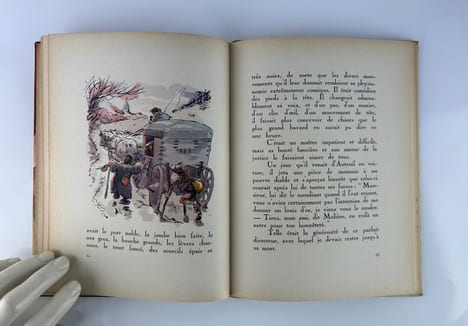 avait le port noble, la jambe bien faite, le
nez gros, la bouche grande, les lèvres char-
nues, le teint foncé, des sourcils épais et
très noirs, de sorte que les divers mou-
vements qu'il leur donnait rendaient sa physio-
nomie extrêmement comique. Il était comédien
des pieds à la tête. Il changeait admira-
blement sa voix, et d'un pas, d'un sourire,
d'un clin d'œil, d'un mouvement de tête,
il faisait plus concevoir de choses que le
plus grand bavard en aurait pu dire en
une heure.
C'était un maître impatient et difficile,
mais sa bonté foncière et son amour de la
justice le faisaient aimer de tous.
Un jour qu'il venait d'Auteuil en voi-
ture, il jeta une pièce de monnaie à un
pauvre diable et s'aperçut bientôt que celui-ci
courait après lui de toutes ses forces : " Mon-
sieur, lui dit le mendiant quand il l'eut rejoint,
vous n'aviez certainement pas l'intention de me
donner un louis d'or, je viens vous le rendre.
— Tiens, mon ami, dit Molière, en voilà un
autre pour ton honnêteté.
Telle était la générosité de ce parfait
directeur, avec lequel je devais rester jusqu'à
sa mort.